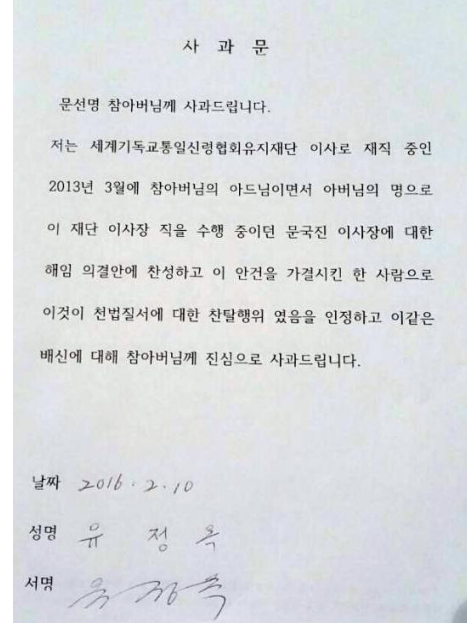 사 과 문
문선명 참아버님께 사과드립니다.
저는 세계기독교통일신령협회유지재단 이사로 재직 중인
2013년 3월에 참아버님의 아드님이면서 아버님의 명으로
이 재단 이사장 직을 수행 중이던 문국진 이사장에 대한
해임 의결안에 찬성하고 이 안건을 가결시킨 한 사람으로
이것이 천법질서에 대한 찬탈행위 였음을 인정하고 이같은
배신에 대해 참아버님께 진심으로 사과드립니다.
날짜 2016. 2. 10
성명 유 정 옥
서명 유정옥